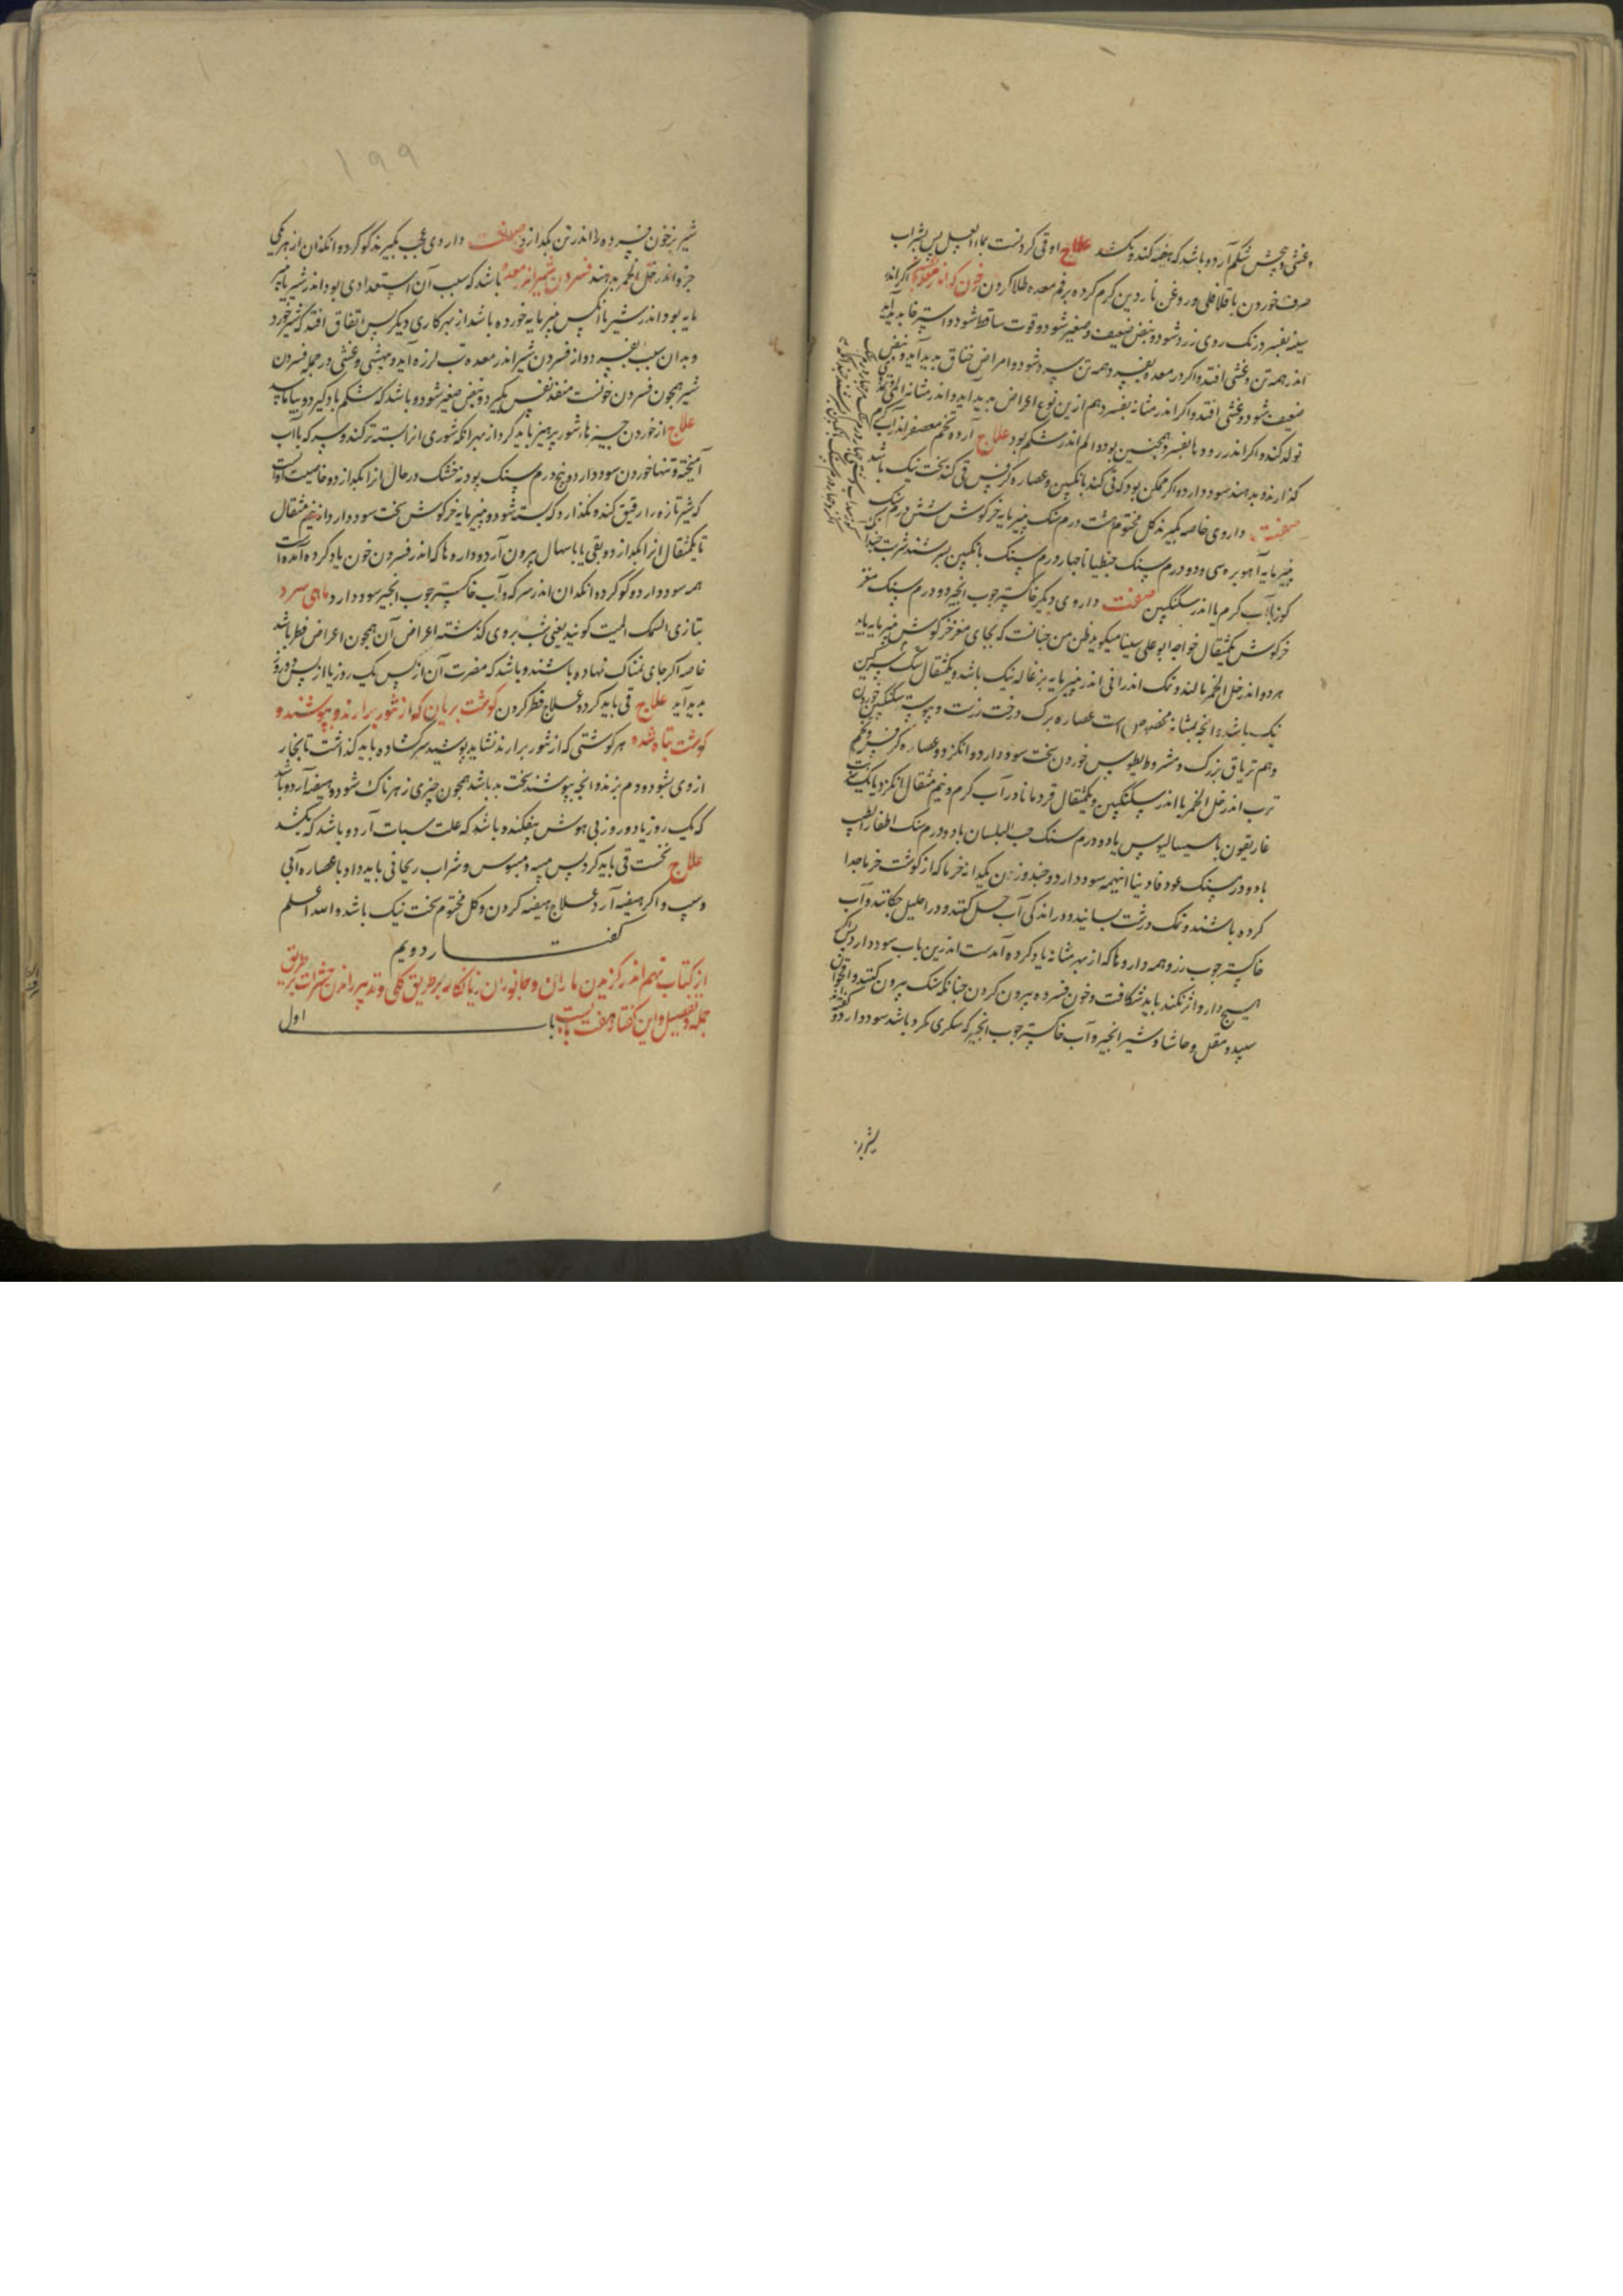 و غشی و پیچش شکم آرد و باشد که هیضه کند و بکشد علاج او قی کردنست بماء العسل پس شراب
صرف خوردن با قلافلی و روغن ناردین کرم کرده بر فم معده طلا کردن خون که اندر معده بفسرد اکر اندر
سینه بفسرد رنک روی زرد شود و نبض ضعیف و صغیر شود و قوت ساقط شود و استرخا پدید آید
اندر همه تن و غشی افتد و اکر در معده بفسرد همه تن سرد شود و امراض خناق پدید آید و نبض
ضعیف شود و غشی افتد و اکر اندر مثانه بفسرد هم ازین نوع اعراض پدید آید و اندر مثانه الم
تولد کند و اکر اندر روده بفسرد همچنین بود و الم اندر شکم بود علاج آرد تخم معصفر اندر آب کرم
کذارند و بدهند سود دارد و اکر ممکن بود که قی کند بانکبین و عصاره کرفس قی کند سخت نیک باشد
صفت داروی خاصه بکیرند کل مختوم هشت درم سنک پنیرمایه خرکوش شش درم سنک
پنیرمایه آهو بره سی و دو درم سنک جنطیانا چهار درم سنک بانکبین بسرشند شربت چند
کوز با آب کرم یا اندر سکنکبین صفت داروی دیکر خاکستر چوب انجیر دو درم سنک مغز
خرکوش یکمثقال خواجه ابو علی سینا میکوید ظن من چنانست که بجای مغز خرکوش پنیرمایه باید
هر دو اندر خل الخمر بمالند و نمک اندرانی اندر پنیرمایه بزغاله نیک باشد و یکمثقال سنک سرکین
نیک باشد و انچه بمثانه مخصوص است عصاره برک درخت رزست و پیوسته سکنکبین خوردن
و هم تریاق بزرک و مثرودیطوس خوردن سخت سود دارد و انکژد و عصاره کرفس و تخم
ترب اندر خل الخمر یا اندر سکنکبین و یکمثقال قردمانا در آب کرم و نیم مثقال انکژد یا یک
غاریقون با سیسالیوس یا دو درم سنک حب البلسان یا دو درم سنک اظفار الطیب
یا دو درم سنک عود فاوینا اینهمه سود دارد و چند وزن یکدانه خرما که از کوشت خرما جدا
کرده باشند و نمک درشت بسایند و در اندکی آب حل کنند و در احلیل چکانند و آب
خاکستر چوب رز و همه داروها که از بهر مثانه یاد کرده آمدست اندرین باب سود دارد پس اکر
هیچ دارو اثر نکند باید شکافت و خون فسرده بیرون کردن چنانکه سنک بیرون کنند و اقحوان
سپید و مقل و حاشا و شیر انجیر و آب خاکستر چوب انجیر که سکری مکرر باشد سود دارد و
شیر بز
۱۹۹
شیر بز خون فسرده را اندر تن بکدازد صفت داروی عجب بکیرند کوکرد و انکدان از هر یکی
جزو اندر خل الخمر بدهند فسردن شیر اندر معده باشد که سبب آن استعدادی بود اندر شیر یا پنیر
مایه بود اندر شیر یا انکس پنیرمایه خورده باشد از بهر کاری دیکر پس اتفاق افتد که شیر خورد
و بدان سبب بفسرد و از فسردن شیر اندر معده تب لرزه آید و بیهشی و غشی و در جمله فسردن
شیر همچون فسردن خونست منفذ نفس بکیرد و نبض صغیر شود و باشد که شکم باد کیرد و بیاماسد
علاج از خوردن چیزها شور پرهیز باید کرد از بهر انکه شوری انرا بسته تر کند و سرکه با آب
آمیخته و تنها خوردن سود دارد و پنج درم سنک پودنه خشک در حال انرا بکدازد و خاصیت او آنست
که شیر تازه را رقیق کند و نکذارد که بسته شود و پنیرمایه خرکوش سخت سود دارد از نیم مثقال
تا یکمثقال انرا بکدازد و بقی یا باسهال بیرون آرد و داروها که اندر فسردن خون یاد کرده آمده است
همه سود دارد و کوکرد و انکدان اندر سرکه و آب خاکستر چوب انجیر سود دارد ماهی سرد
بتازی السمک المیت کویند یعنی شب بروی کذشته اعراض آن همچون اعراض فطر باشد
خاصه اکر جای نمناک نهاده باشند و باشد که مضرت آن از پس یک روز یا از پس دو روز
پدید آید علاج قی باید کرد و علاج فطر کردن کوشت بریان که از تنور برارند و بپوشند و
کوشت تباه شده هر کوشتی که از تنور برارند نشاید پوشید سر کشاده باید کذاشت تا بخار
از وی بشود و دم بزند و انچه بپوشند سخت بد باشد همچون چیزی زهرناک شود و هیضه آرد و باشد
که یک روز یا دو روز بی هوش بیفکند و باشد که علت سبات آرد و باشد که بکشد
علاج نخست قی باید کرد پس میبه و میسوس و شراب ریحانی باید داد با عصاره آبی
و سیب و اکر هیضه آرد علاج هیضه کردن و کل مختوم سخت نیک باشد والله اعلم
کفتار دویم
از کتاب نهم اندر کزیدن ماران و جانوران زیانکار بر طریق کلی و تدبیر راندن حشرات بر طریق
جمله و تفصیل و این کفتار هفت بابست باب اول